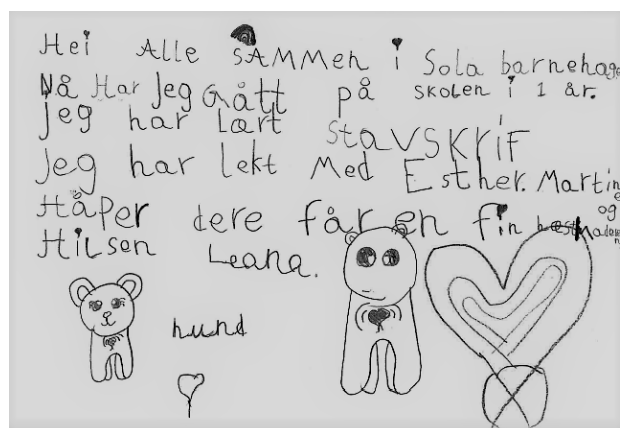 Hei Alle SAMMen i Sola barnehage
Nå Har Jeg Gått på skolen i 1 år.
jeg har Lært StaVSKRiF
Jeg har lekt Med Esther. Martine
og
Håper dere får en fin
Hilsen Leana.
hund